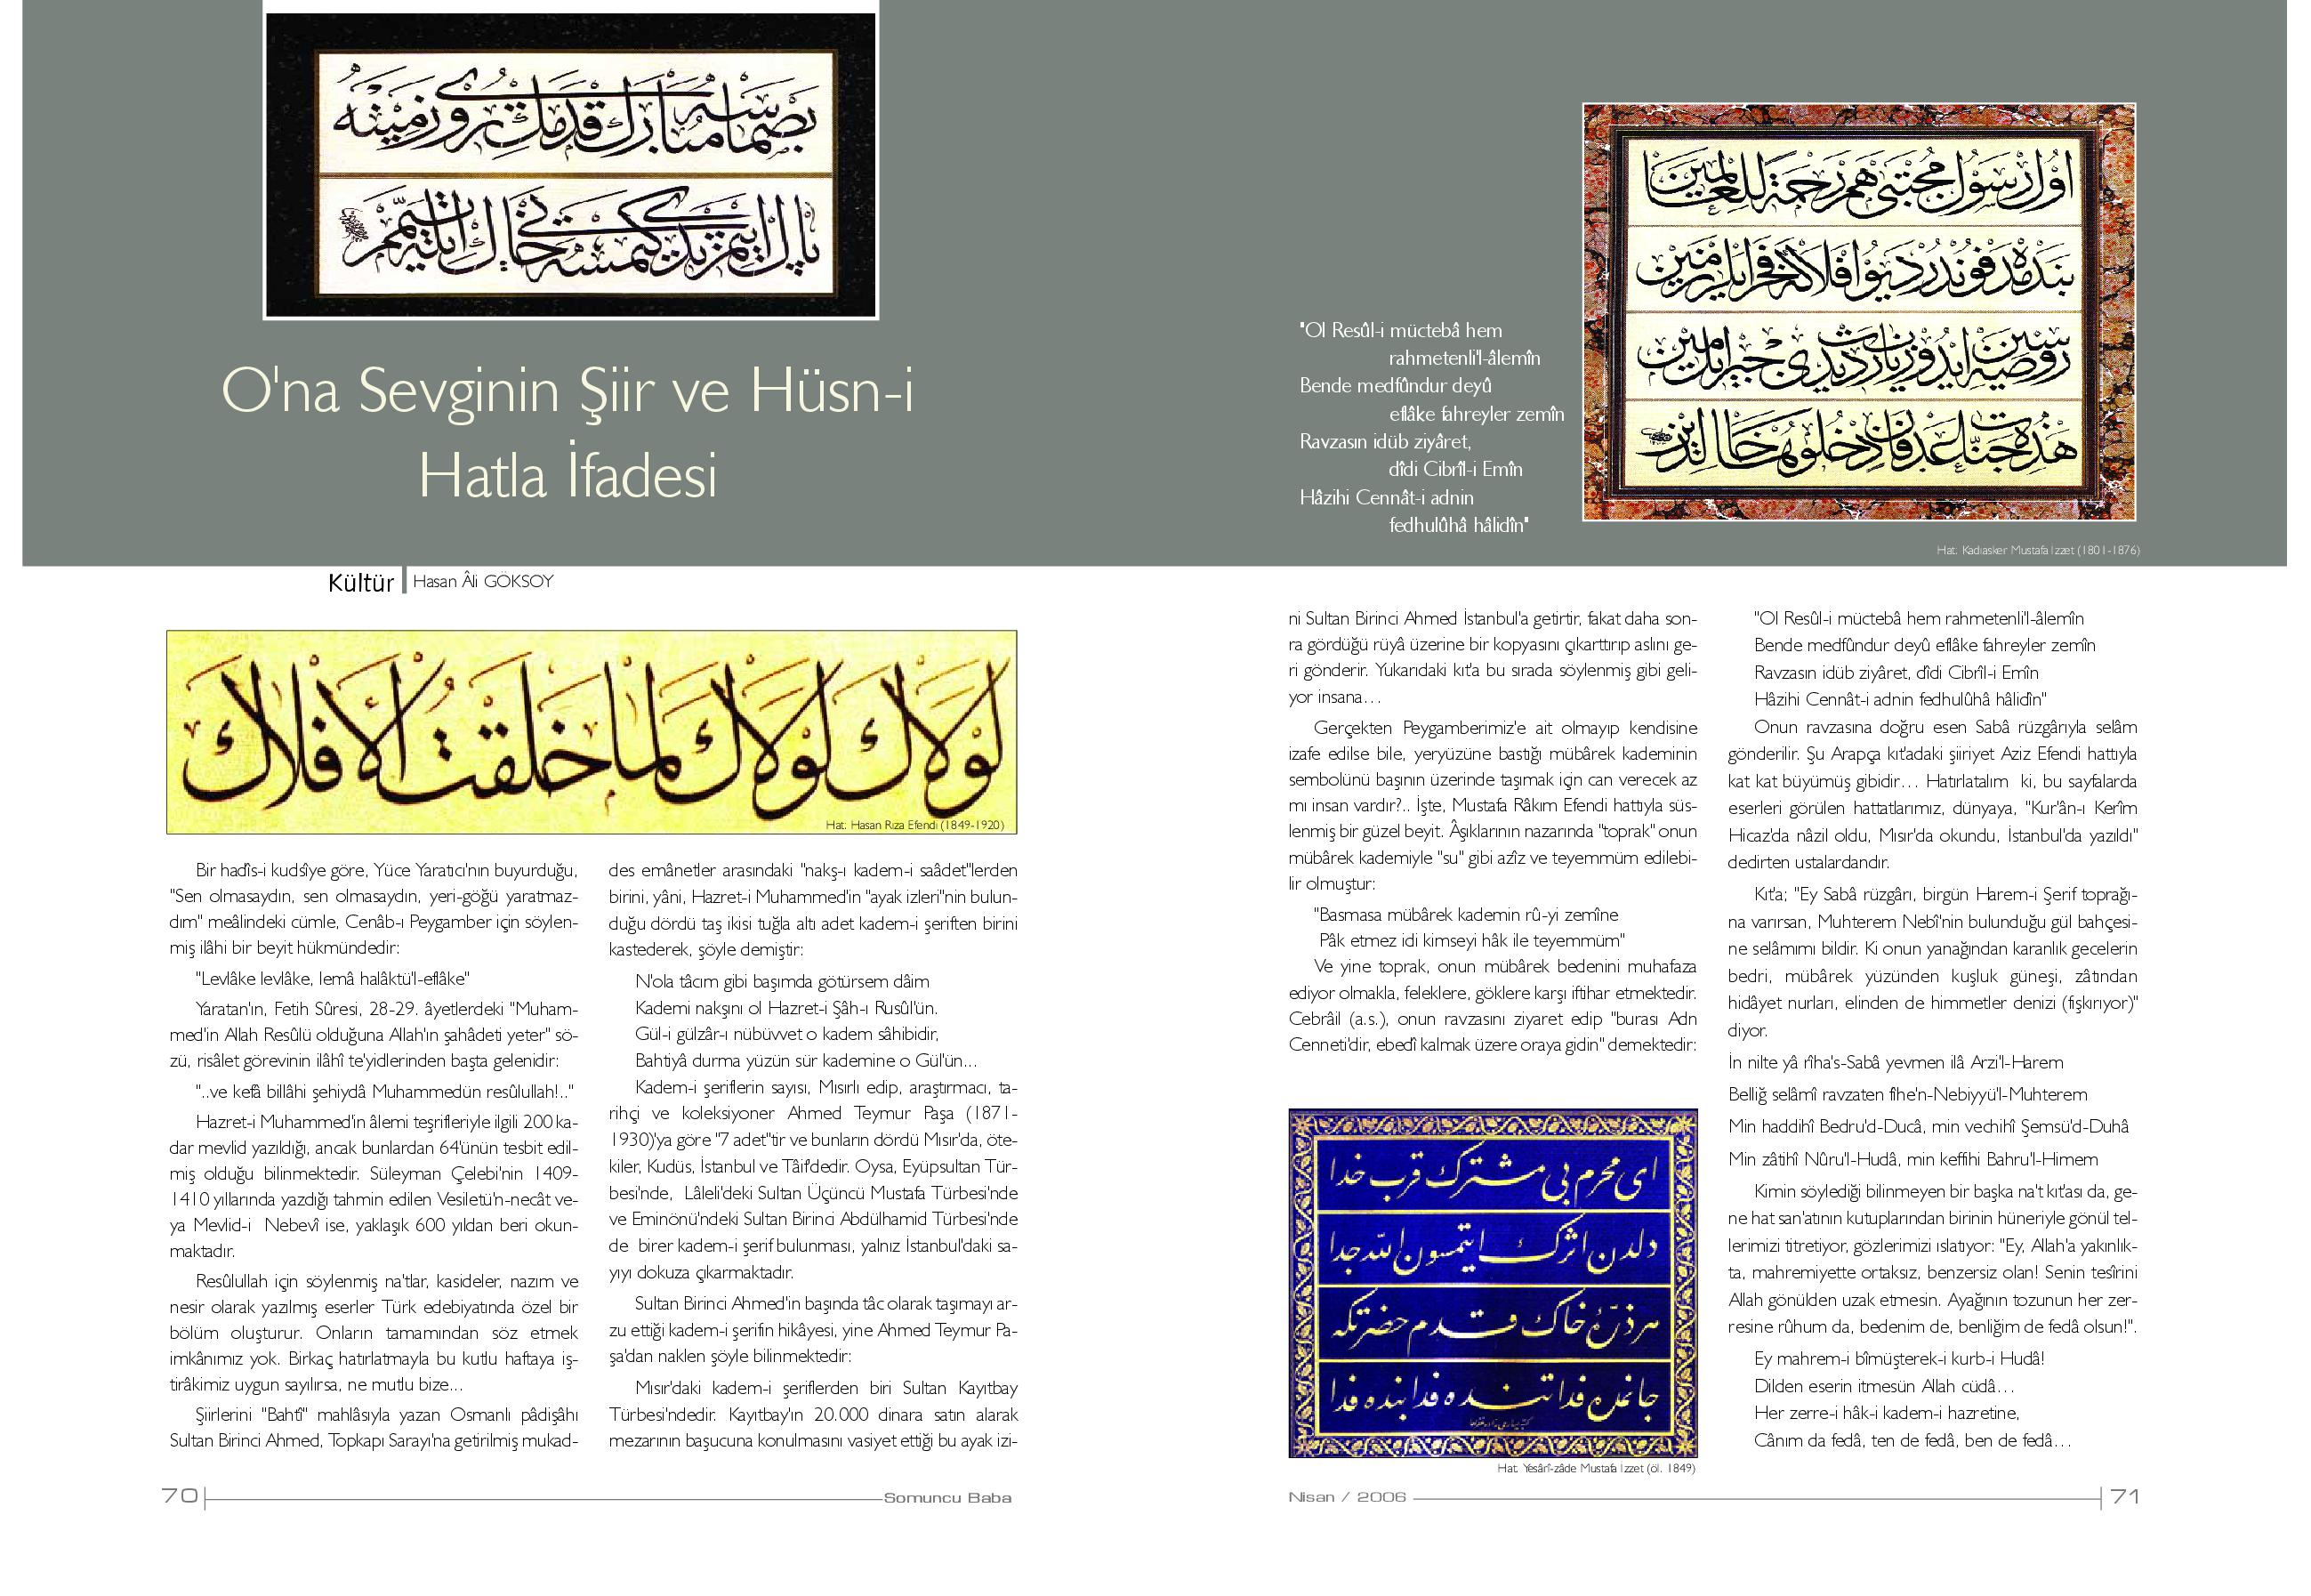 بصماسه مبارك قدمك روی زمینه
پاك ایتمزیدی كیمسه‌یی خاك ایله تیمم
O'na Sevginin Şiir ve Hüsn-i
Hatla İfadesi
Kültür Hasan Âli GÖKSOY
لولاك لولاك لما خلقت الأفلاك
Hat: Hasan Rıza Efendi (1849-1920)
Bir hadîs-i kudsîye göre, Yüce Yaratıcı'nın buyurduğu,
"Sen olmasaydın, sen olmasaydın, yeri-göğü yaratmaz-
dım" meâlindeki cümle, Cenâb-ı Peygamber için söylen-
miş ilâhi bir beyit hükmündedir:
"Levlâke levlâke, lemâ halâktü'l-eflâke"
Yaratan'ın, Fetih Sûresi, 28-29. âyetlerdeki "Muham-
med'in Allah Resûlü olduğuna Allah'ın şahâdeti yeter" sö-
zü, risâlet görevinin ilâhî te'yidlerinden başta gelenidir:
"..ve kefâ billâhi şehiydâ Muhammedün resûlullah!.."
Hazret-i Muhammed'in âlemi teşrifleriyle ilgili 200 ka-
dar mevlid yazıldığı, ancak bunlardan 64'ünün tesbit edil-
miş olduğu bilinmektedir. Süleyman Çelebi'nin 1409-
1410 yıllarında yazdığı tahmin edilen Vesiletü'n-necât ve-
ya Mevlid-i Nebevî ise, yaklaşık 600 yıldan beri okun-
maktadır.
Resûlullah için söylenmiş na'tlar, kasideler, nazım ve
nesir olarak yazılmış eserler Türk edebiyatında özel bir
bölüm oluşturur. Onların tamamından söz etmek
imkânımız yok. Birkaç hatırlatmayla bu kutlu haftaya iş-
tirâkimiz uygun sayılırsa, ne mutlu bize...
Şiirlerini "Bahtî" mahlâsıyla yazan Osmanlı pâdişâhı
Sultan Birinci Ahmed, Topkapı Sarayı'na getirilmiş mukad-
des emânetler arasındaki "nakş-ı kadem-i saâdet"lerden
birini, yâni, Hazret-i Muhammed'in "ayak izleri"nin bulun-
duğu dördü taş ikisi tuğla altı adet kadem-i şeriften birini
kastederek, şöyle demiştir:
N'ola tâcım gibi başımda götürsem dâim
Kademi nakşını ol Hazret-i Şâh-ı Rusûl'ün.
Gül-i gülzâr-ı nübüvvet o kadem sâhibidir,
Bahtiyâ durma yüzün sür kademine o Gül'ün...
Kadem-i şeriflerin sayısı, Mısırlı edip, araştırmacı, ta-
rihçi ve koleksiyoner Ahmed Teymur Paşa (1871-
1930)'ya göre "7 adet"tir ve bunların dördü Mısır'da, öte-
kiler, Kudüs, İstanbul ve Tâif'dedir. Oysa, Eyüpsultan Tür-
besi'nde, Lâleli'deki Sultan Üçüncü Mustafa Türbesi'nde
ve Eminönü'ndeki Sultan Birinci Abdülhamid Türbesi'nde
de birer kadem-i şerif bulunması, yalnız İstanbul'daki sa-
yıyı dokuza çıkarmaktadır.
Sultan Birinci Ahmed'in başında tâc olarak taşımayı ar-
zu ettiği kadem-i şerifin hikâyesi, yine Ahmed Teymur Pa-
şa'dan naklen şöyle bilinmektedir:
Mısır'daki kadem-i şeriflerden biri Sultan Kayıtbay
Türbesi'ndedir. Kayıtbay'ın 20.000 dinara satın alarak
mezarının başucuna konulmasını vasiyet ettiği bu ayak izi-
70 Somuncu Baba
"Ol Resûl-i müctebâ hem
rahmetenli'l-âlemîn
Bende medfûndur deyû
eflâke fahreyler zemîn
Ravzasın idüb ziyâret,
dîdi Cibrîl-i Emîn
Hâzihi Cennât-i adnin
fedhulûhâ hâlidîn"
اول رسول مجتبی هم رحمة للعالمین
بنده مدفوندر دیو افلاكه فخر ایلر زمین
روضه‌سین ایدوب زیارت دیدی جبریل امین
هذه جنات عدن فادخلوها خالدین
Hat: Kadıasker Mustafa Izzet (1801-1876)
ni Sultan Birinci Ahmed İstanbul'a getirtir, fakat daha son-
ra gördüğü rüyâ üzerine bir kopyasını çıkarttırıp aslını ge-
ri gönderir. Yukarıdaki kıt'a bu sırada söylenmiş gibi geli-
yor insana…
Gerçekten Peygamberimiz'e ait olmayıp kendisine
izafe edilse bile, yeryüzüne bastığı mübârek kademinin
sembolünü başının üzerinde taşımak için can verecek az
mı insan vardır?.. İşte, Mustafa Râkım Efendi hattıyla süs-
lenmiş bir güzel beyit. Âşıklarının nazarında "toprak" onun
mübârek kademiyle "su" gibi azîz ve teyemmüm edilebi-
lir olmuştur:
"Basmasa mübârek kademin rû-yi zemîne
Pâk etmez idi kimseyi hâk ile teyemmüm"
Ve yine toprak, onun mübârek bedenini muhafaza
ediyor olmakla, feleklere, göklere karşı iftihar etmektedir.
Cebrâil (a.s.), onun ravzasını ziyaret edip "burası Adn
Cenneti'dir, ebedî kalmak üzere oraya gidin" demektedir:
ای محرم بی مشترك قرب خدا
دلدن اثرك ایتمسون الله جدا
هر ذره خاك قدم حضرتكه
جانمده فدا تنده فدا بنده فدا
Hat. Yesârî-zâde Mustafa Izzet (öl. 1849)
"Ol Resûl-i müctebâ hem rahmetenli'l-âlemîn
Bende medfûndur deyû eflâke fahreyler zemîn
Ravzasın idüb ziyâret, dîdi Cibrîl-i Emîn
Hâzihi Cennât-i adnin fedhulûhâ hâlidîn"
Onun ravzasına doğru esen Sabâ rüzgârıyla selâm
gönderilir. Şu Arapça kıt'adaki şiiriyet Aziz Efendi hattıyla
kat kat büyümüş gibidir… Hatırlatalım ki, bu sayfalarda
eserleri görülen hattatlarımız, dünyaya, "Kur'ân-ı Kerîm
Hicaz'da nâzil oldu, Mısır'da okundu, İstanbul'da yazıldı"
dedirten ustalardandır.
Kıt'a; "Ey Sabâ rüzgârı, birgün Harem-i Şerif toprağı-
na varırsan, Muhterem Nebî'nin bulunduğu gül bahçesi-
ne selâmımı bildir. Ki onun yanağından karanlık gecelerin
bedri, mübârek yüzünden kuşluk güneşi, zâtından
hidâyet nurları, elinden de himmetler denizi (fışkırıyor)"
diyor.
İn nilte yâ rîha's-Sabâ yevmen ilâ Arzi'l-Harem
Belliğ selâmî ravzaten fîhe'n-Nebiyyü'l-Muhterem
Min haddihî Bedru'd-Ducâ, min vechihî Şemsü'd-Duhâ
Min zâtihî Nûru'l-Hudâ, min keffihi Bahru'l-Himem
Kimin söylediği bilinmeyen bir başka na't kıt'ası da, ge-
ne hat san'atının kutuplarından birinin hüneriyle gönül tel-
lerimizi titretiyor, gözlerimizi ıslatıyor: "Ey, Allah'a yakınlık-
ta, mahremiyette ortaksız, benzersiz olan! Senin tesîrini
Allah gönülden uzak etmesin. Ayağının tozunun her zer-
resine rûhum da, bedenim de, benliğim de fedâ olsun!".
Ey mahrem-i bîmüşterek-i kurb-i Hudâ!
Dilden eserin itmesün Allah cüdâ…
Her zerre-i hâk-i kadem-i hazretine,
Cânım da fedâ, ten de fedâ, ben de fedâ…
Nisan / 2006 71